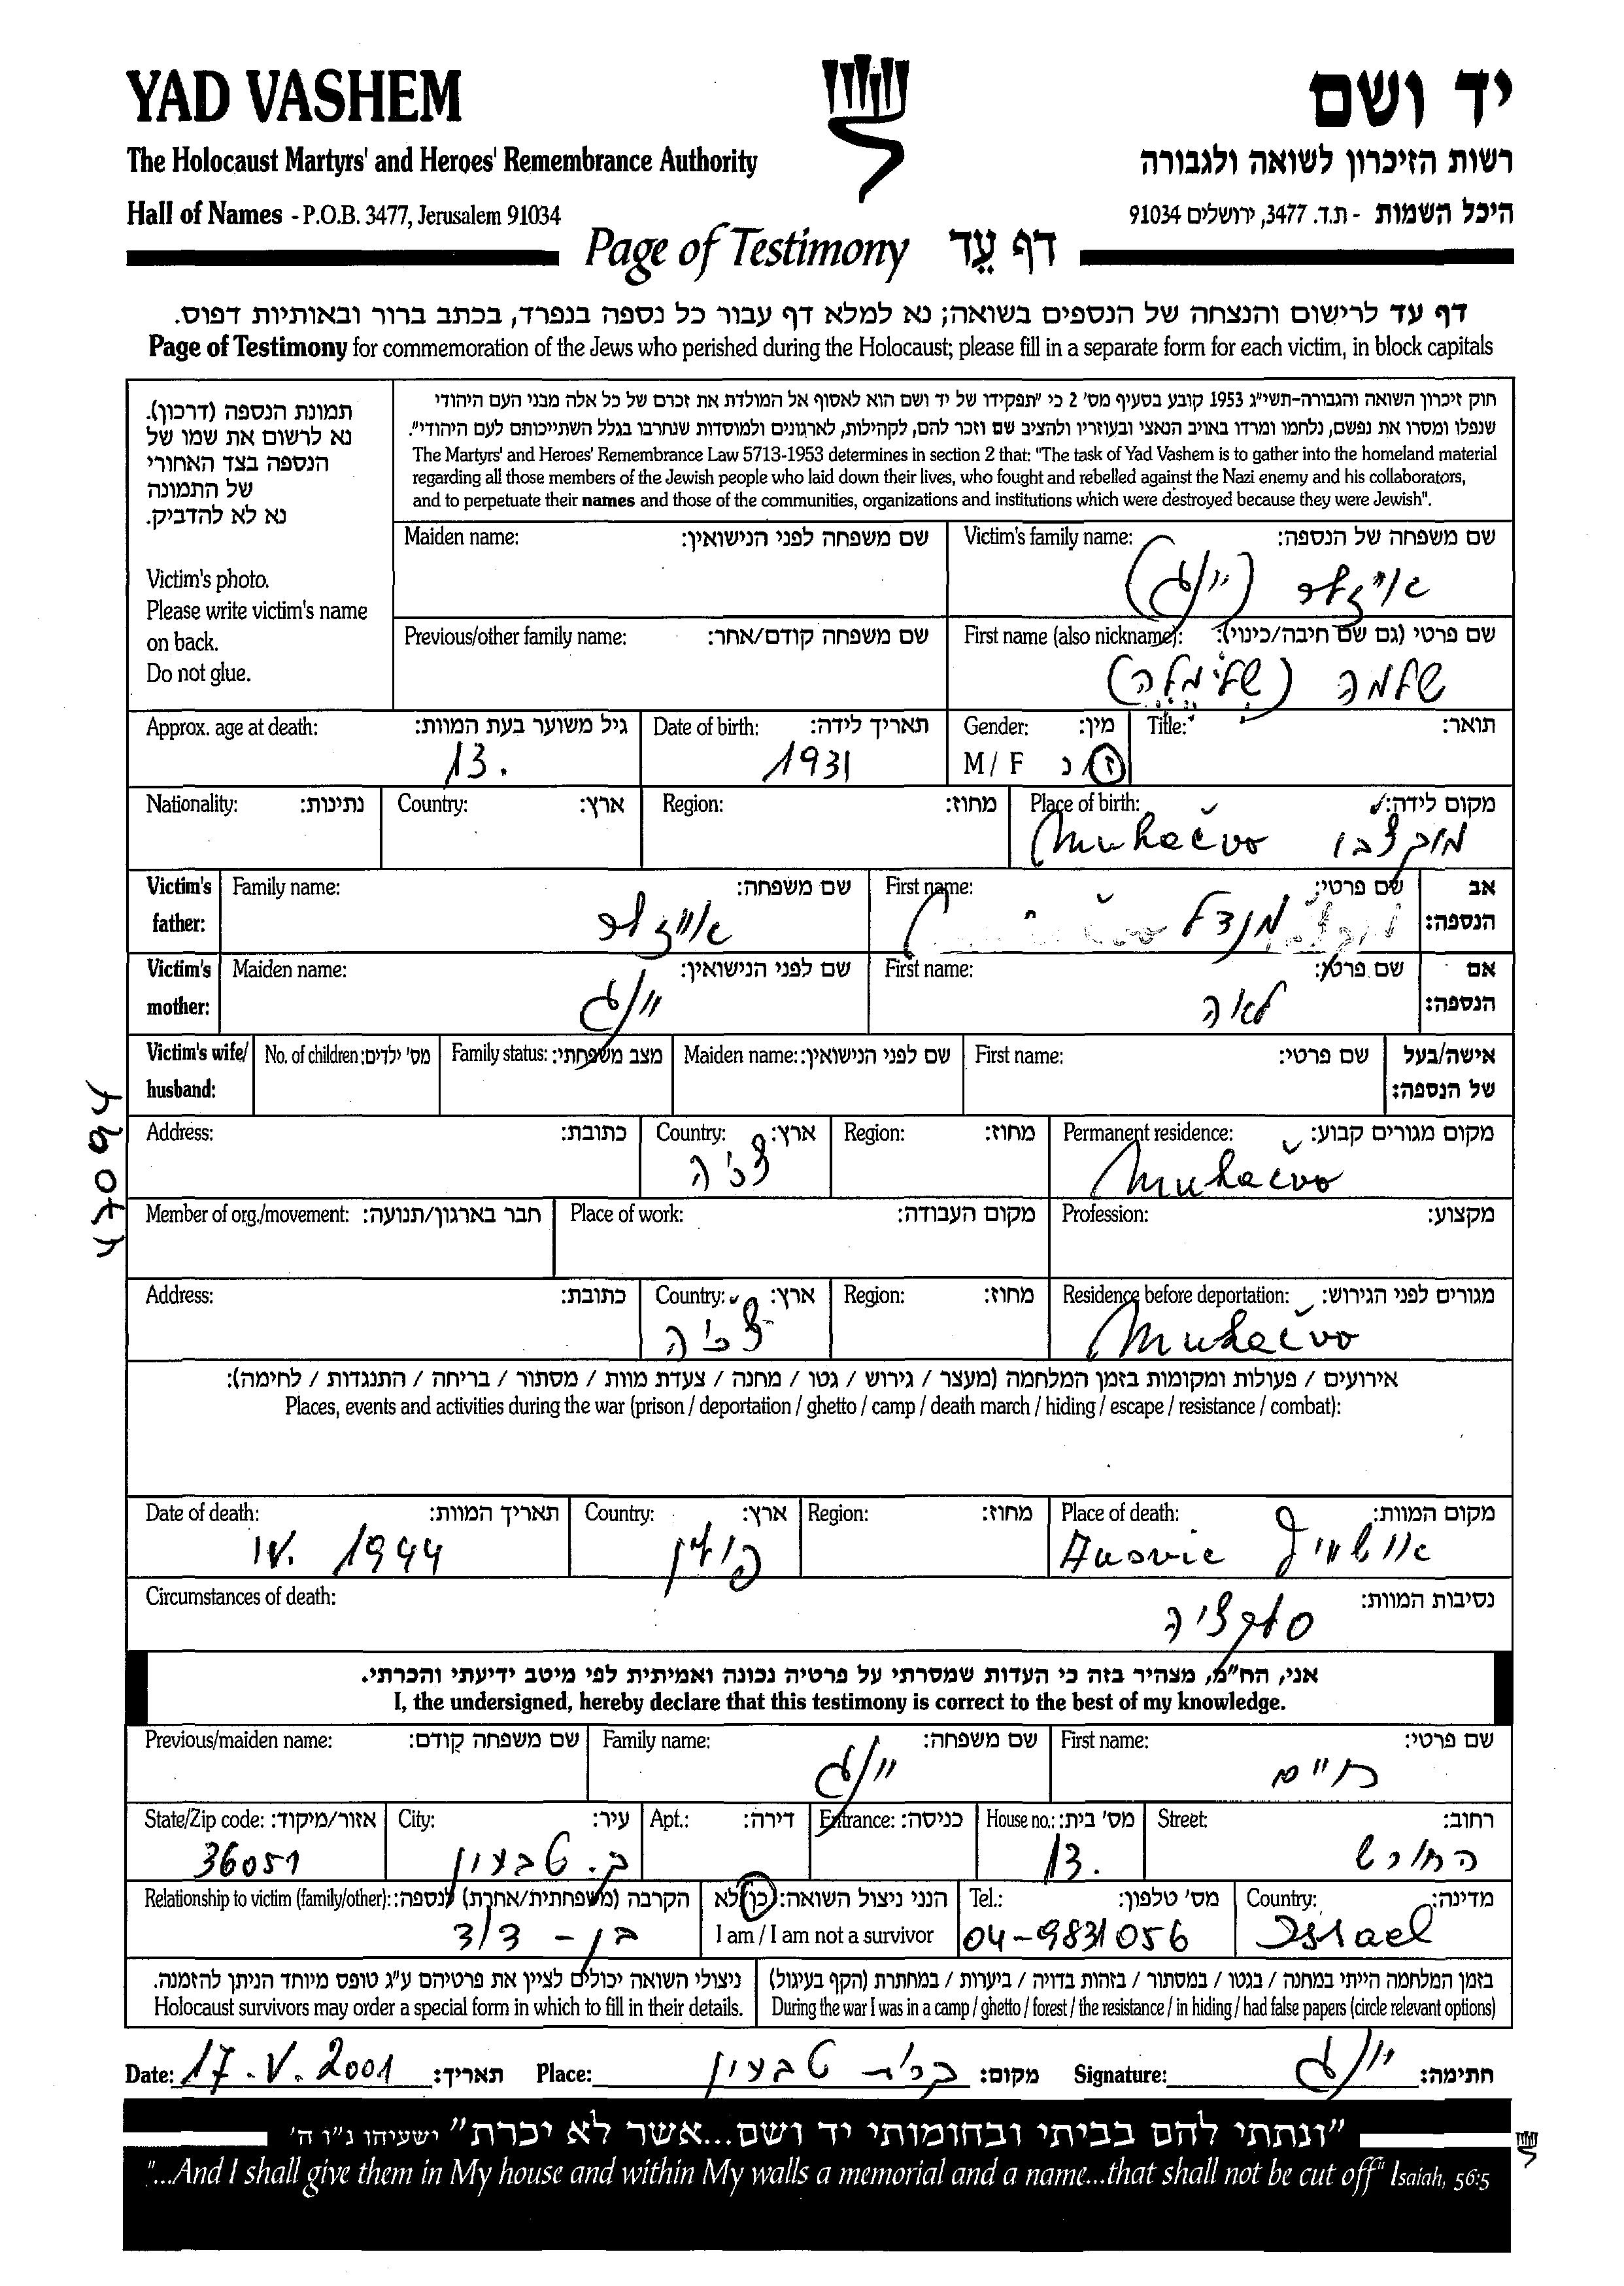 YAD VASHEM
יד ושם
The Holocaust Martyrs' and Heroes' Remembrance Authority
רשות הזיכרון לשואה ולגבורה
Hall of Names - P.O.B. 3477, Jerusalem 91034
היכל השמות - ת.ד. 3477, ירושלים 91034
Page of Testimony דף עֵד
דף עד לרישום והנצחה של הנספים בשואה; נא למלא דף עבור כל נספה בנפרד, בכתב ברור ובאותיות דפוס.
Page of Testimony for commemoration of the Jews who perished during the Holocaust; please fill in a separate form for each victim, in block capitals
תמונת הנספה (דרכון).
נא לרשום את שמו של
הנספה בצד האחורי
של התמונה
נא לא להדביק.
Victim's photo.
Please write victim's name
on back.
Do not glue.
חוק זיכרון השואה והגבורה-תשי"ג 1953 קובע בסעיף מס' 2 כי "תפקידו של יד ושם הוא לאסוף אל המולדת את זכרם של כל אלה מבני העם היהודי
שנפלו ומסרו את נפשם, נלחמו ומרדו באויב הנאצי ובעוזריו ולהציב שם וזכר להם, לקהילות, לארגונים ולמוסדות שנחרבו בגלל השתייכותם לעם היהודי".
The Martyrs' and Heroes' Remembrance Law 5713-1953 determines in section 2 that: "The task of Yad Vashem is to gather into the homeland material
regarding all those members of the Jewish people who laid down their lives, who fought and rebelled against the Nazi enemy and his collaborators,
and to perpetuate their names and those of the communities, organizations and institutions which were destroyed because they were Jewish".
Maiden name: שם משפחה לפני הנישואין:
Victim's family name: שם משפחה של הנספה:
(יונג)
Previous/other family name: שם משפחה קודם/אחר:
First name (also nickname): שם פרטי (גם שם חיבה/כינוי):
שלמה (שלימלה)
Approx. age at death: גיל משוער בעת המוות:
13.
Date of birth: תאריך לידה:
1931
Gender: מין:
M / F ז/נ
Title: תואר:
Nationality: נתינות:
Country: ארץ:
Region: מחוז:
Place of birth: מקום לידה:
Mukačevo מוקצבו
Victim's father: Family name: שם משפחה:
First name: שם פרטי: אב הנספה:
מנדל
Victim's mother: Maiden name: שם לפני הנישואין:
יונג
First name: שם פרטי: אם הנספה:
לאה
Victim's wife/ husband: No. of children: מס' ילדים:
Family status: מצב משפחתי:
Maiden name: שם לפני הנישואין:
First name: שם פרטי: אישה/בעל של הנספה:
Address: כתובת:
Country: ארץ:
צ'כיה
Region: מחוז:
Permanent residence: מקום מגורים קבוע:
Mukačevo
Member of org./movement: חבר בארגון/תנועה:
Place of work: מקום העבודה:
Profession: מקצוע:
Address: כתובת:
Country: ארץ:
צ'כיה
Region: מחוז:
Residence before deportation: מגורים לפני הגירוש:
Mukačevo
אירועים / פעולות ומקומות בזמן המלחמה (מעצר / גירוש / גטו / מחנה / צעדת מוות / מסתור / בריחה / התנגדות / לחימה):
Places, events and activities during the war (prison / deportation / ghetto / camp / death march / hiding / escape / resistance / combat):
Date of death: תאריך המוות:
1944
Country: ארץ:
פולין
Region: מחוז:
Place of death: מקום המוות:
אושוויץ
Circumstances of death: נסיבות המוות:
סלקציה
אני, הח"מ, מצהיר בזה כי העדות שמסרתי על פרטיה נכונה ואמיתית לפי מיטב ידיעתי והכרתי.
I, the undersigned, hereby declare that this testimony is correct to the best of my knowledge.
Previous/maiden name: שם משפחה קודם:
Family name: שם משפחה:
יונג
First name: שם פרטי:
חיים
State/Zip code: אזור/מיקוד:
36051
City: עיר:
ק. טבעון
Apt.: דירה:
Entrance: כניסה:
House no.: מס' בית:
13.
Street: רחוב:
החורש
Relationship to victim (family/other): הקרבה (משפחתית/אחרת) לנספה:
בן - דוד
הנני ניצול השואה: כן/לא
I am / I am not a survivor
Tel.: מס' טלפון:
04-9831056
Country: מדינה:
Israel
ניצולי השואה יכולים לציין את פרטיהם ע"ג טופס מיוחד הניתן להזמנה.
Holocaust survivors may order a special form in which to fill in their details.
בזמן המלחמה הייתי במחנה / בגטו / במסתור / בזהות בדויה / ביערות / במחתרת (הקף בעיגול)
During the war I was in a camp / ghetto / forest / the resistance / in hiding / had false papers (circle relevant options)
Date: 17.V.2001 תאריך:
Place: קרית טבעון מקום:
Signature: יונג חתימה:
"ונתתי להם בביתי ובחומותי יד ושם...אשר לא יכרת" ישעיהו נ"ו ה'
"...And I shall give them in My house and within My walls a memorial and a name...that shall not be cut off" Isaiah, 56:5